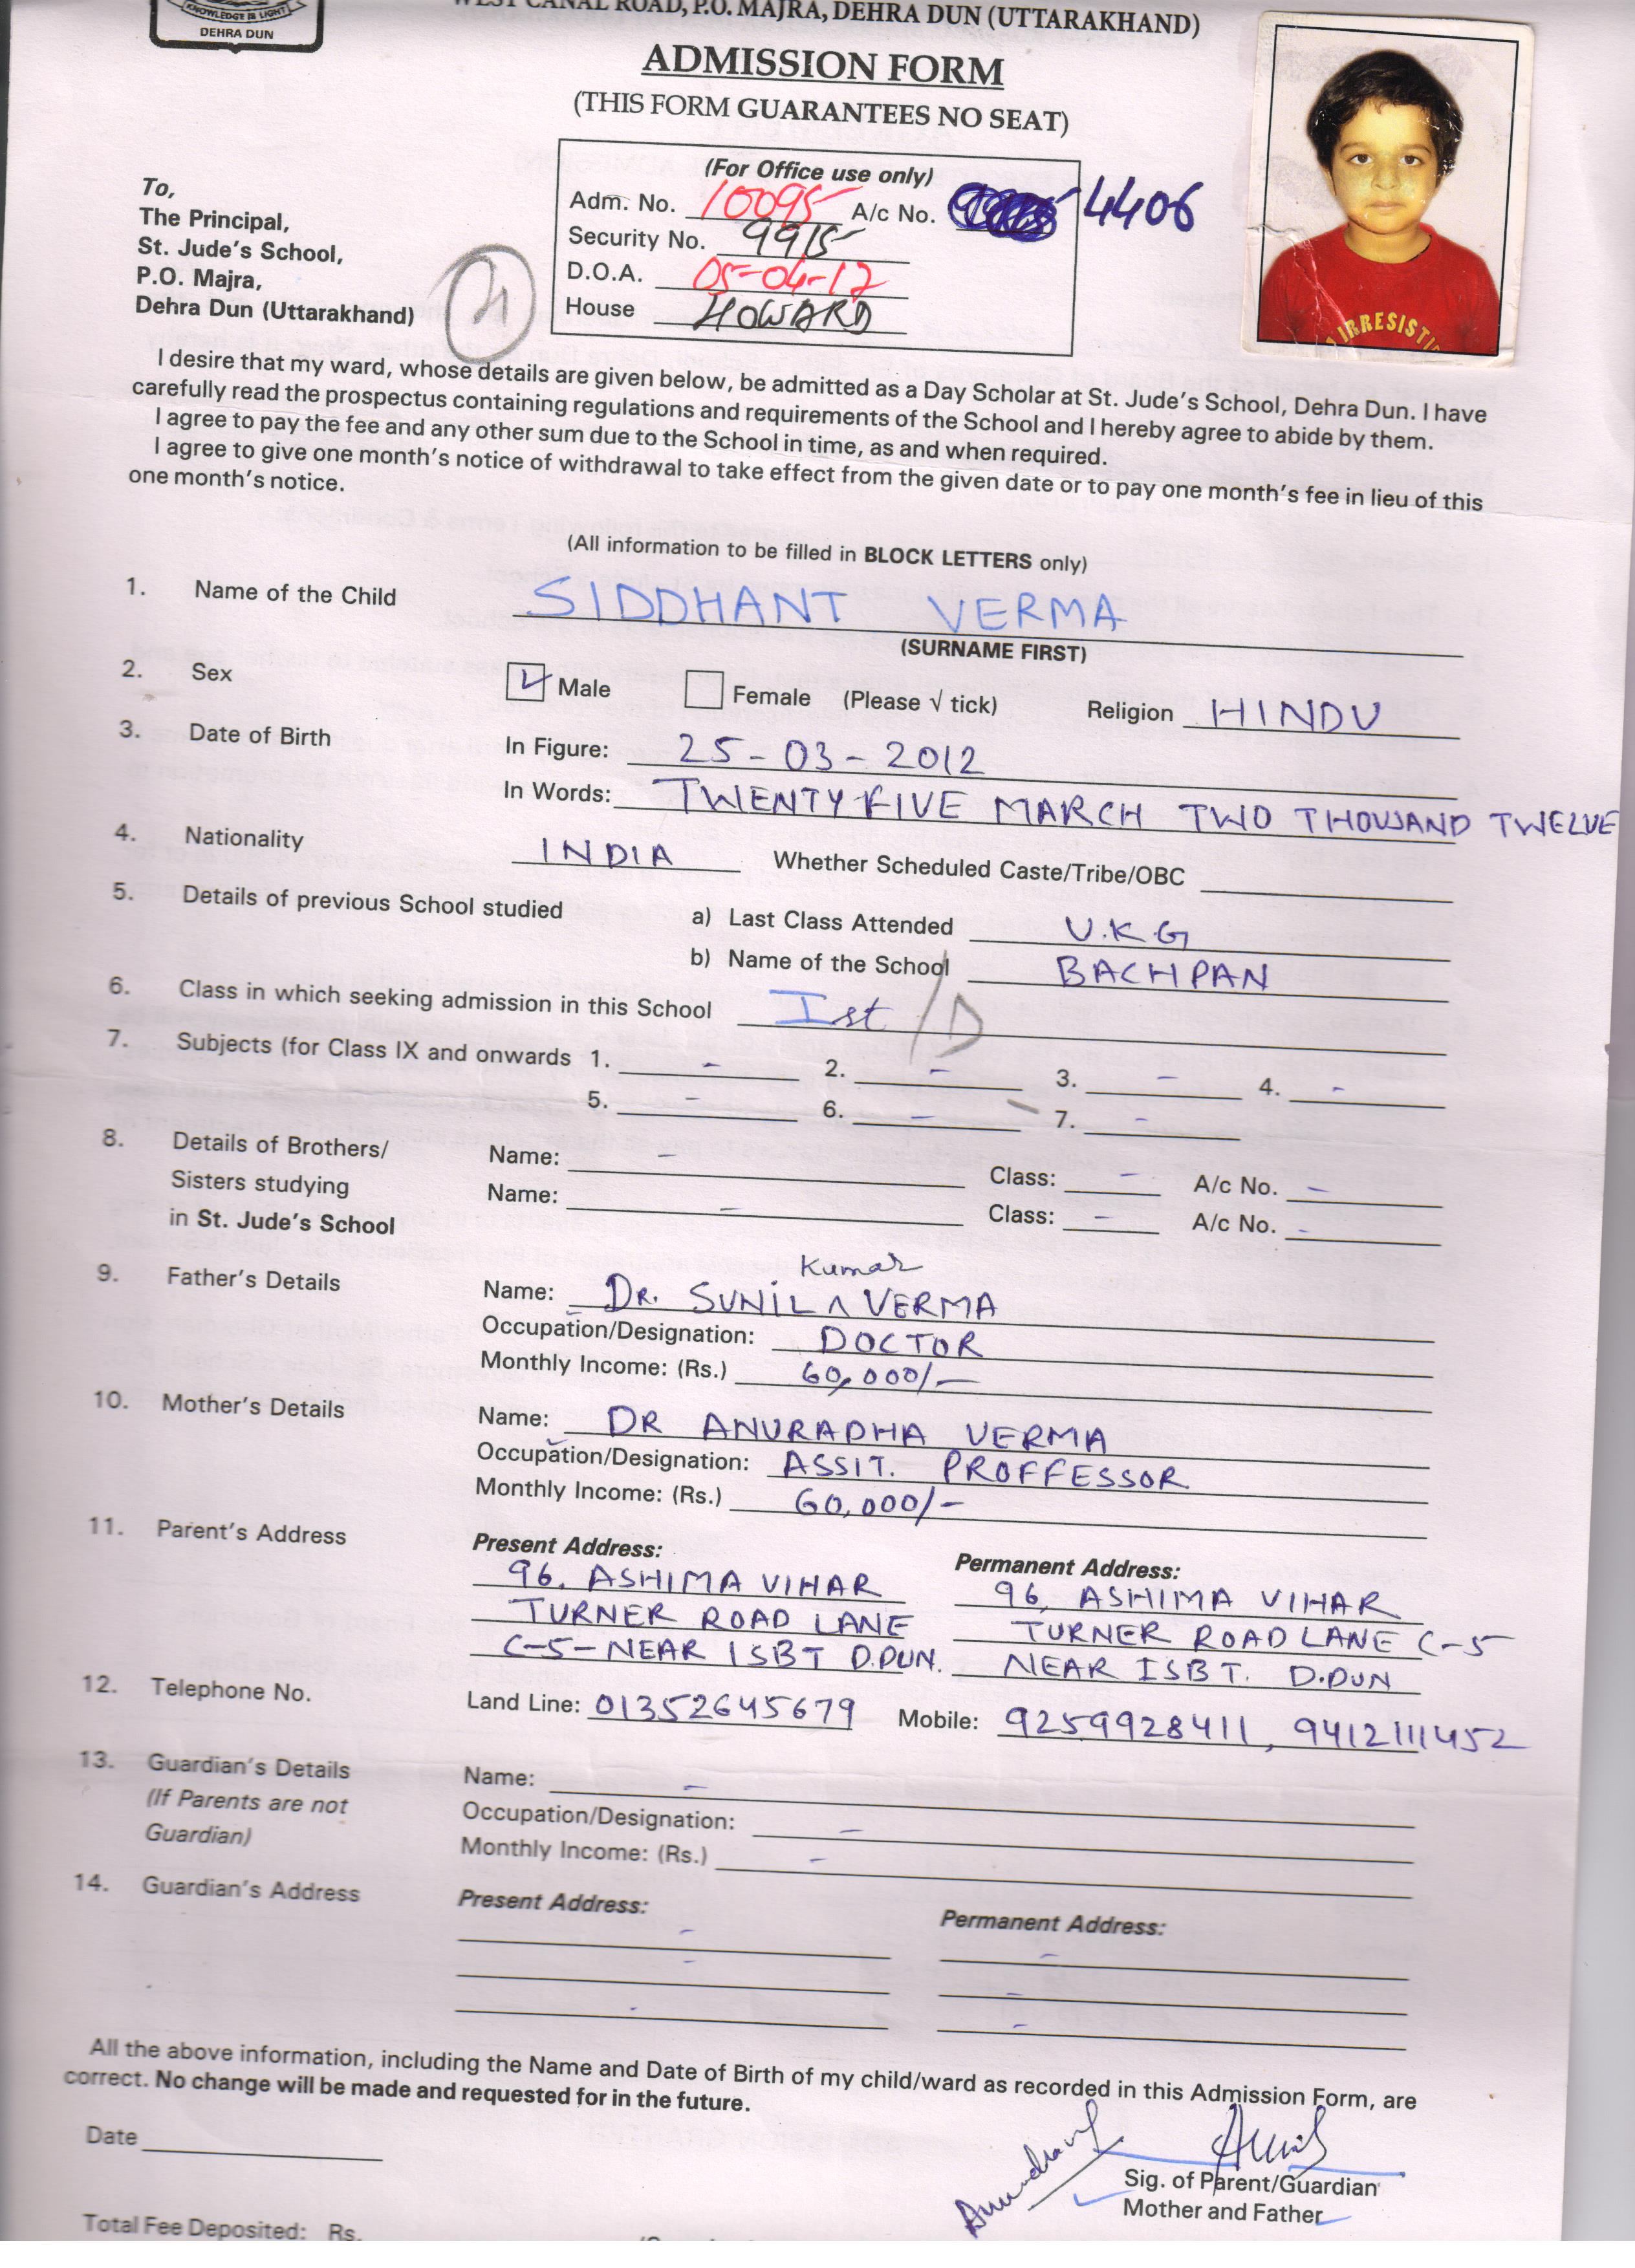 KNOWLEDGE IS LIGHT
DEHRA DUN
WEST CANAL ROAD, P.O. MAJRA, DEHRA DUN (UTTARAKHAND)
ADMISSION FORM
(THIS FORM GUARANTEES NO SEAT)
(For Office use only)
Adm. No. 10095 A/c No. 4406
Security No. 9915
D.O.A. 05-04-17
House HOWARD
To,
The Principal,
St. Jude's School,
P.O. Majra,
Dehra Dun (Uttarakhand)
IRRESISTI
I desire that my ward, whose details are given below, be admitted as a Day Scholar at St. Jude's School, Dehra Dun. I have
carefully read the prospectus containing regulations and requirements of the School and I hereby agree to abide by them.
I agree to pay the fee and any other sum due to the School in time, as and when required.
I agree to give one month's notice of withdrawal to take effect from the given date or to pay one month's fee in lieu of this
one month's notice.
(All information to be filled in BLOCK LETTERS only)
1. Name of the Child SIDDHANT VERMA
(SURNAME FIRST)
2. Sex Male Female (Please √ tick) Religion HINDU
3. Date of Birth In Figure: 25-03-2012
In Words: TWENTY FIVE MARCH TWO THOUSAND TWELVE
4. Nationality INDIA Whether Scheduled Caste/Tribe/OBC
5. Details of previous School studied a) Last Class Attended U.K.G
b) Name of the School BACHPAN
6. Class in which seeking admission in this School Ist /D
7. Subjects (for Class IX and onwards 1. - 2. - 3. - 4. -
5. - 6. - 7. -
8. Details of Brothers/ Name: - Class: - A/c No. -
Sisters studying Name: - Class: - A/c No. -
in St. Jude's School
Kumar
9. Father's Details Name: DR. SUNIL ^ VERMA
Occupation/Designation: DOCTOR
Monthly Income: (Rs.) 60,000/-
10. Mother's Details Name: DR ANURADHA VERMA
Occupation/Designation: ASSIT. PROFFESSOR
Monthly Income: (Rs.) 60,000/-
11. Parent's Address Present Address: Permanent Address:
96, ASHIMA VIHAR 96, ASHIMA VIHAR
TURNER ROAD LANE TURNER ROAD LANE C-5
C-5-NEAR ISBT D.DUN. NEAR ISBT. D.DUN
12. Telephone No. Land Line: 01352645679 Mobile: 9259928411, 9412111452
13. Guardian's Details Name: -
(If Parents are not Occupation/Designation: -
Guardian) Monthly Income: (Rs.) -
14. Guardian's Address Present Address: Permanent Address:
- -
- -
- -
All the above information, including the Name and Date of Birth of my child/ward as recorded in this Admission Form, are
correct. No change will be made and requested for in the future.
Date
Sig. of Parent/Guardian
Mother and Father
Total Fee Deposited: Rs.